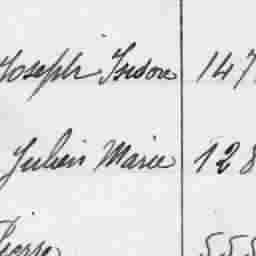 Joseph Isidore 147
Julien Marie 128
Pierre 555